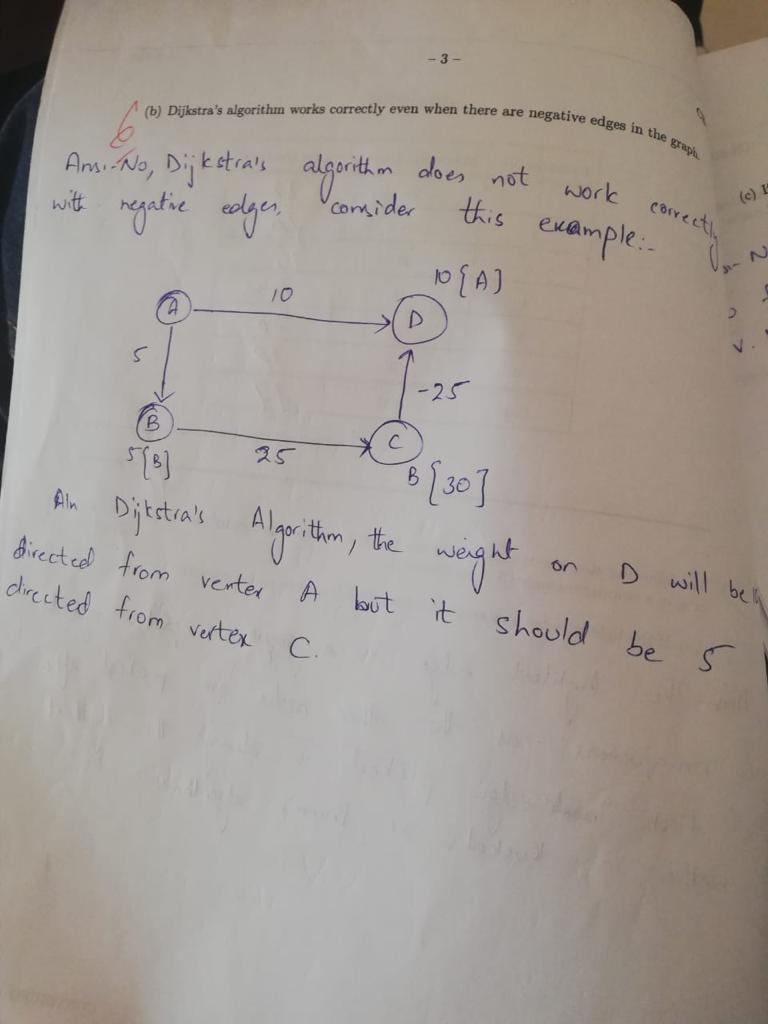 - 3 -
(b) Dijkstra's algorithm works correctly even when there are negative edges in the graph.
6
Ans:- No, Dijkstra's algorithm does not work correctly
with negative edges, consider this example:-
10 [A]
A 10 D
5
-25
B 25 C
5[B]
B [30]
In Dijkstra's Algorithm, the weight on D will be
directed from vertex A but it should be 5
directed from vertex C.
(c)